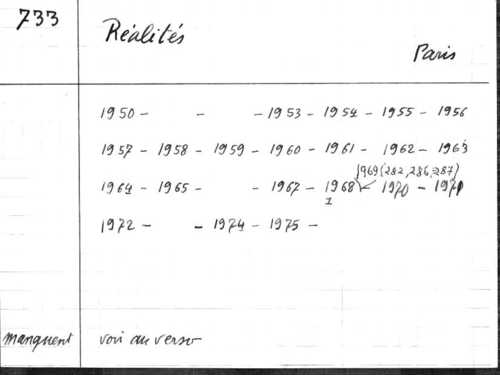 733
Réalités
Paris
1950 - - - 1953 - 1954 - 1955 - 1956
1957 - 1958 - 1959 - 1960 - 1961 - 1962 - 1963
1969 (282, 286, 287)
1964 - 1965 - - 1967 - 1968 1970 - 1971
1
1972 - - 1974 - 1975 -
manquent voir au verso